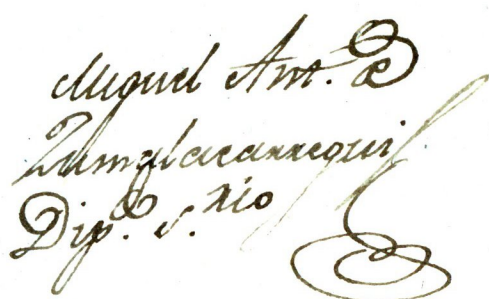 Miguel Ant. de
Zumalacarregui
Dip.do s.rio